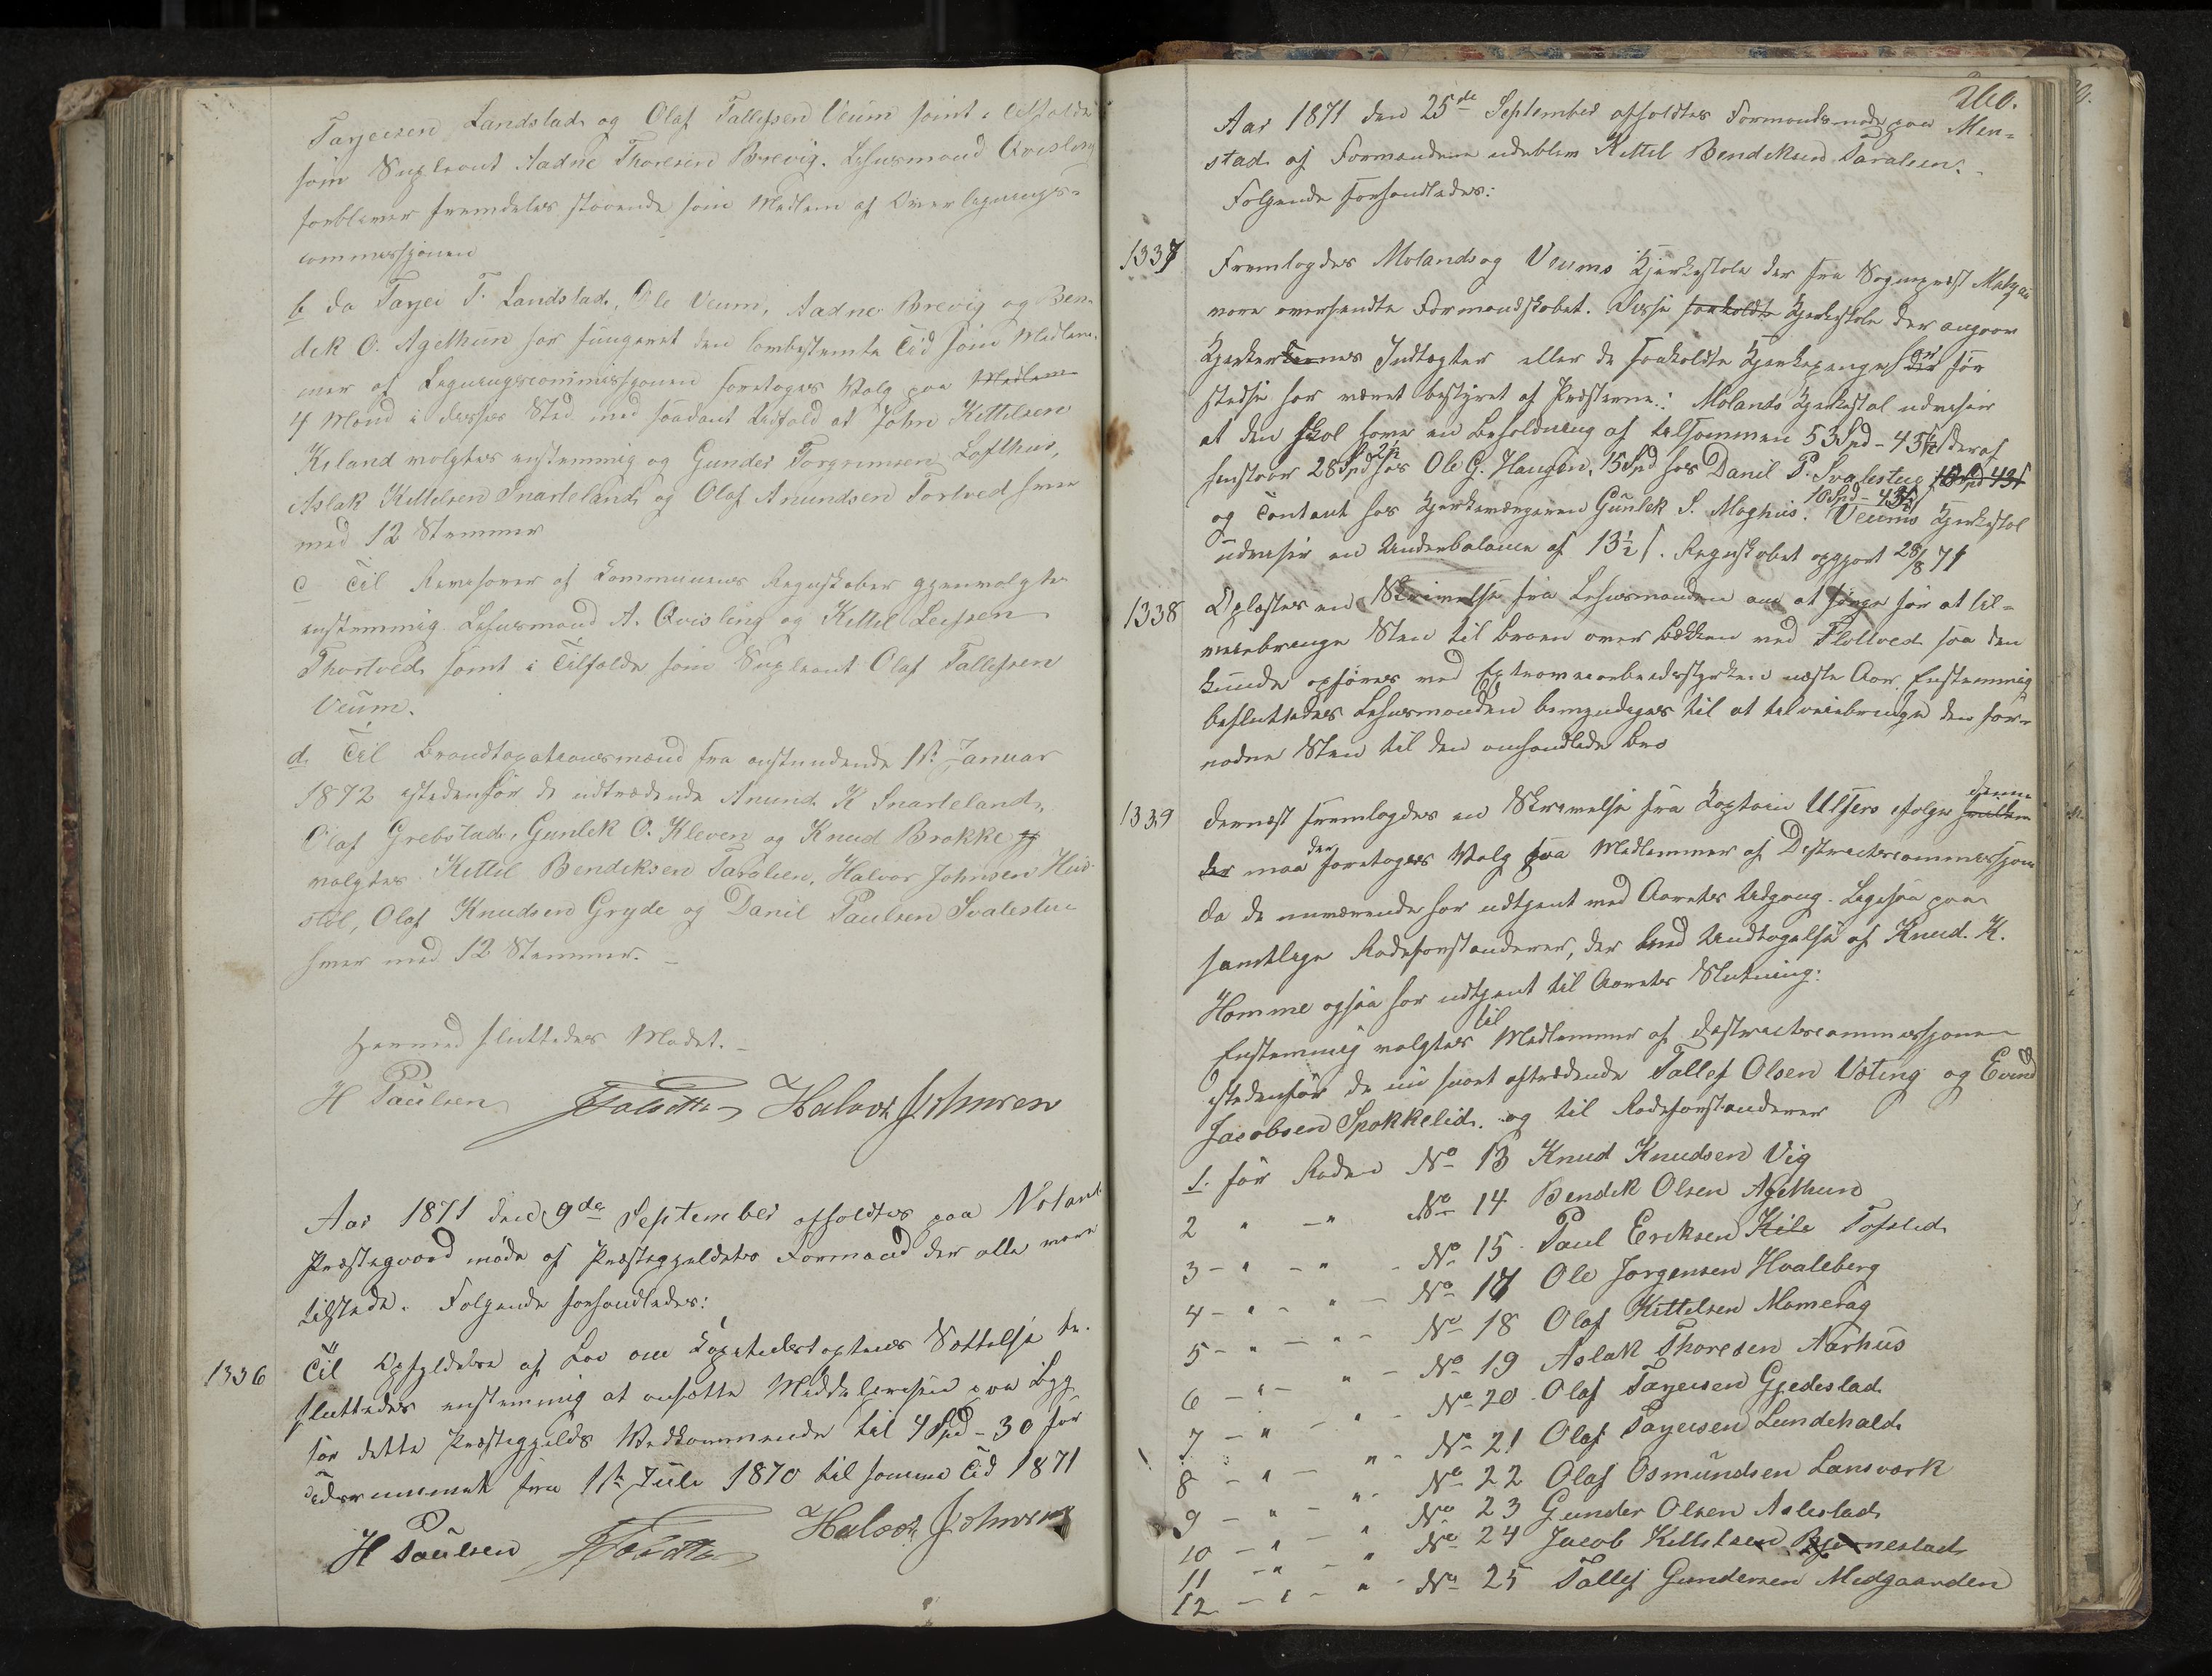 Tarjeisen Landstad og Olaf Tallefsen Veum samt i Tilfælde
som Supleant Aadne Thoresen Brevig. Lehnsmand Qvisling
forbliver fremdeles staaende som Medlem af Overlegnings-
commissjonen
b da Tarjei T. Landstad, Ole Veum, Aadne Brevig og Ben-
dek O. Agethun har fungeret den lovbestemte Tid som Medlem-
mer af Legningscommissjonen foretoges Valg paa Medlem
4 Mænd i disses Sted med saadant Udfald at John Kettelsen
Kiland valgtes enstemmig og Gunder Torgrimsen Lofthus,
Aslak Kittelsen Snarteland og Olaf Anundsen Tortved hver
med 12 Stemmer
c Til Revisorer af Kommunens Regnskaber gjenvalgtes
enstemmig Lehnsmand A. Qvisling og Kettel Leifsen
Thortved samt i Tilfælde som Supleant Olaf Tallefsen
Veum.
d. Til Brandtaxationsmænd fra anstundende 1st Januar
1872 istedenfor de udtrædende Anund K Snarteland,
Olaf Grebstad, Gunlek O. Kleven og Knud Brokke
valgtes Kittil Bendiksen Taraleen, Halvor Johnsen Hus-
stöl, Olaf Knudsen Gryde og Daniel Paulsen Svalestu-
hver med 12 Stemmer.
Hermed sluttedes Mødet.
H Paulsen Halvor Johnsen
Aar 1871 den 9de September afholdtes paa Moland
Præstegaard møde af Præstegjeldets Formænd der alle vare
tilstede. Følgende forhandledes:
1336 Til Opfyldelse af Lov om Kapitelstaxtens Sættelse be-
sluttedes enstemmig at ansætte Middelprisen paa Byg
for dette Præstegjelds Vedkommende til 4 Spd - 30 for
Tidsrummet fra 1ste Juli 1870 til samme Tid 1871
H Paulsen Halvor Johnsen
260.
Aar 1871 den 25de September afholdtes Formandsmøde paa Men-
stad af Formændene udeblev Kittel Bendiksen Taraleen.
Følgende forhandledes:
1337 Fremlagdes Molands og Veums Kjerkestole der fra Sogneprest
vare oversendte Formandskabet. Disse saakaldte Kjerkestole der angaar
Kjerkernes Indtægter eller de saakaldte Kjerkepenge der før
stedse har været bestyret af Præsterne: Molands Kjerkestol udviser
at den skal have en Beholdning af tilsammen 53 Spd - 45½ s deraf
henstaar 28 Spd 2½ hos Ole G. Haugen, 15 Spd hos Danil P. Svalestug 10 Spd 43 s
10 Spd - 43 s
og Contant hos Kjerkeværgeren Gunlek S. Moghus. Veums Kjerkestol
udviser en Underbalance af 13½ s. Regnskabet opgjort 28/8 71
1338 Oplæstes en Skrivelse fra Lehnsmanden om at sørge for at til-
veiebringe Sten til Broen over Bækken ved Flottved saa den
kunde opføres ved Extraveiarbeidsstyrken næste Aar. Enstemmig
besluttedes Lehnsmanden bemyndiges til at tilveiebringe den for-
nødne Sten til den omhandlede Bro
1339 dernæst fremlagdes en Skrivelse fra Captein Ulfers ifølge denne
der maa der foretages Valg paa Medlemmer af Districtscommissjonen
da de nuværende har udtjent ved Aarets Udgang. Ligesaa paa
samtlige Rodeforstandere, der med Undtagelse af Knud K.
Homme ogsaa har udtjent til Aarets Slutning:
Enstemmig valgtes til Medlemmer af districtscommissjonen
istedenfor de nu snart aftrædende Tallef Olsen Væting og Evind
Jacobsen Spokkelid. og til Rodeforstandere
1. for Roden No 13 Knud Knudsen Vig
2 " - " No 14 Bendik Olsen Agethun
3 - " - " - No 15 Paul Ericksen Kile Tofslid
4 - " - " - No 17 Ole Jorgensen Hvaleberg
5 - " - " - No 18 Olaf Kittelsen Momerag
6 - " - " - No 19 Aslak Thoresen Aarhus
7 - " - " - No 20 Olaf Tarjeisen Gjedestad
8 - " - " - No 21 Olaf Tarjeisen Lundehald
9 - " - " - No 22 Olaf Osmundsen Lansvark
10 - " - " No 23 Gunder Olsen Aslestad
11 - " - " No 24 Jacob Kittelsen Bjørnestad
12 - " - " - No 25 Tallef Gundersen Midgaarden